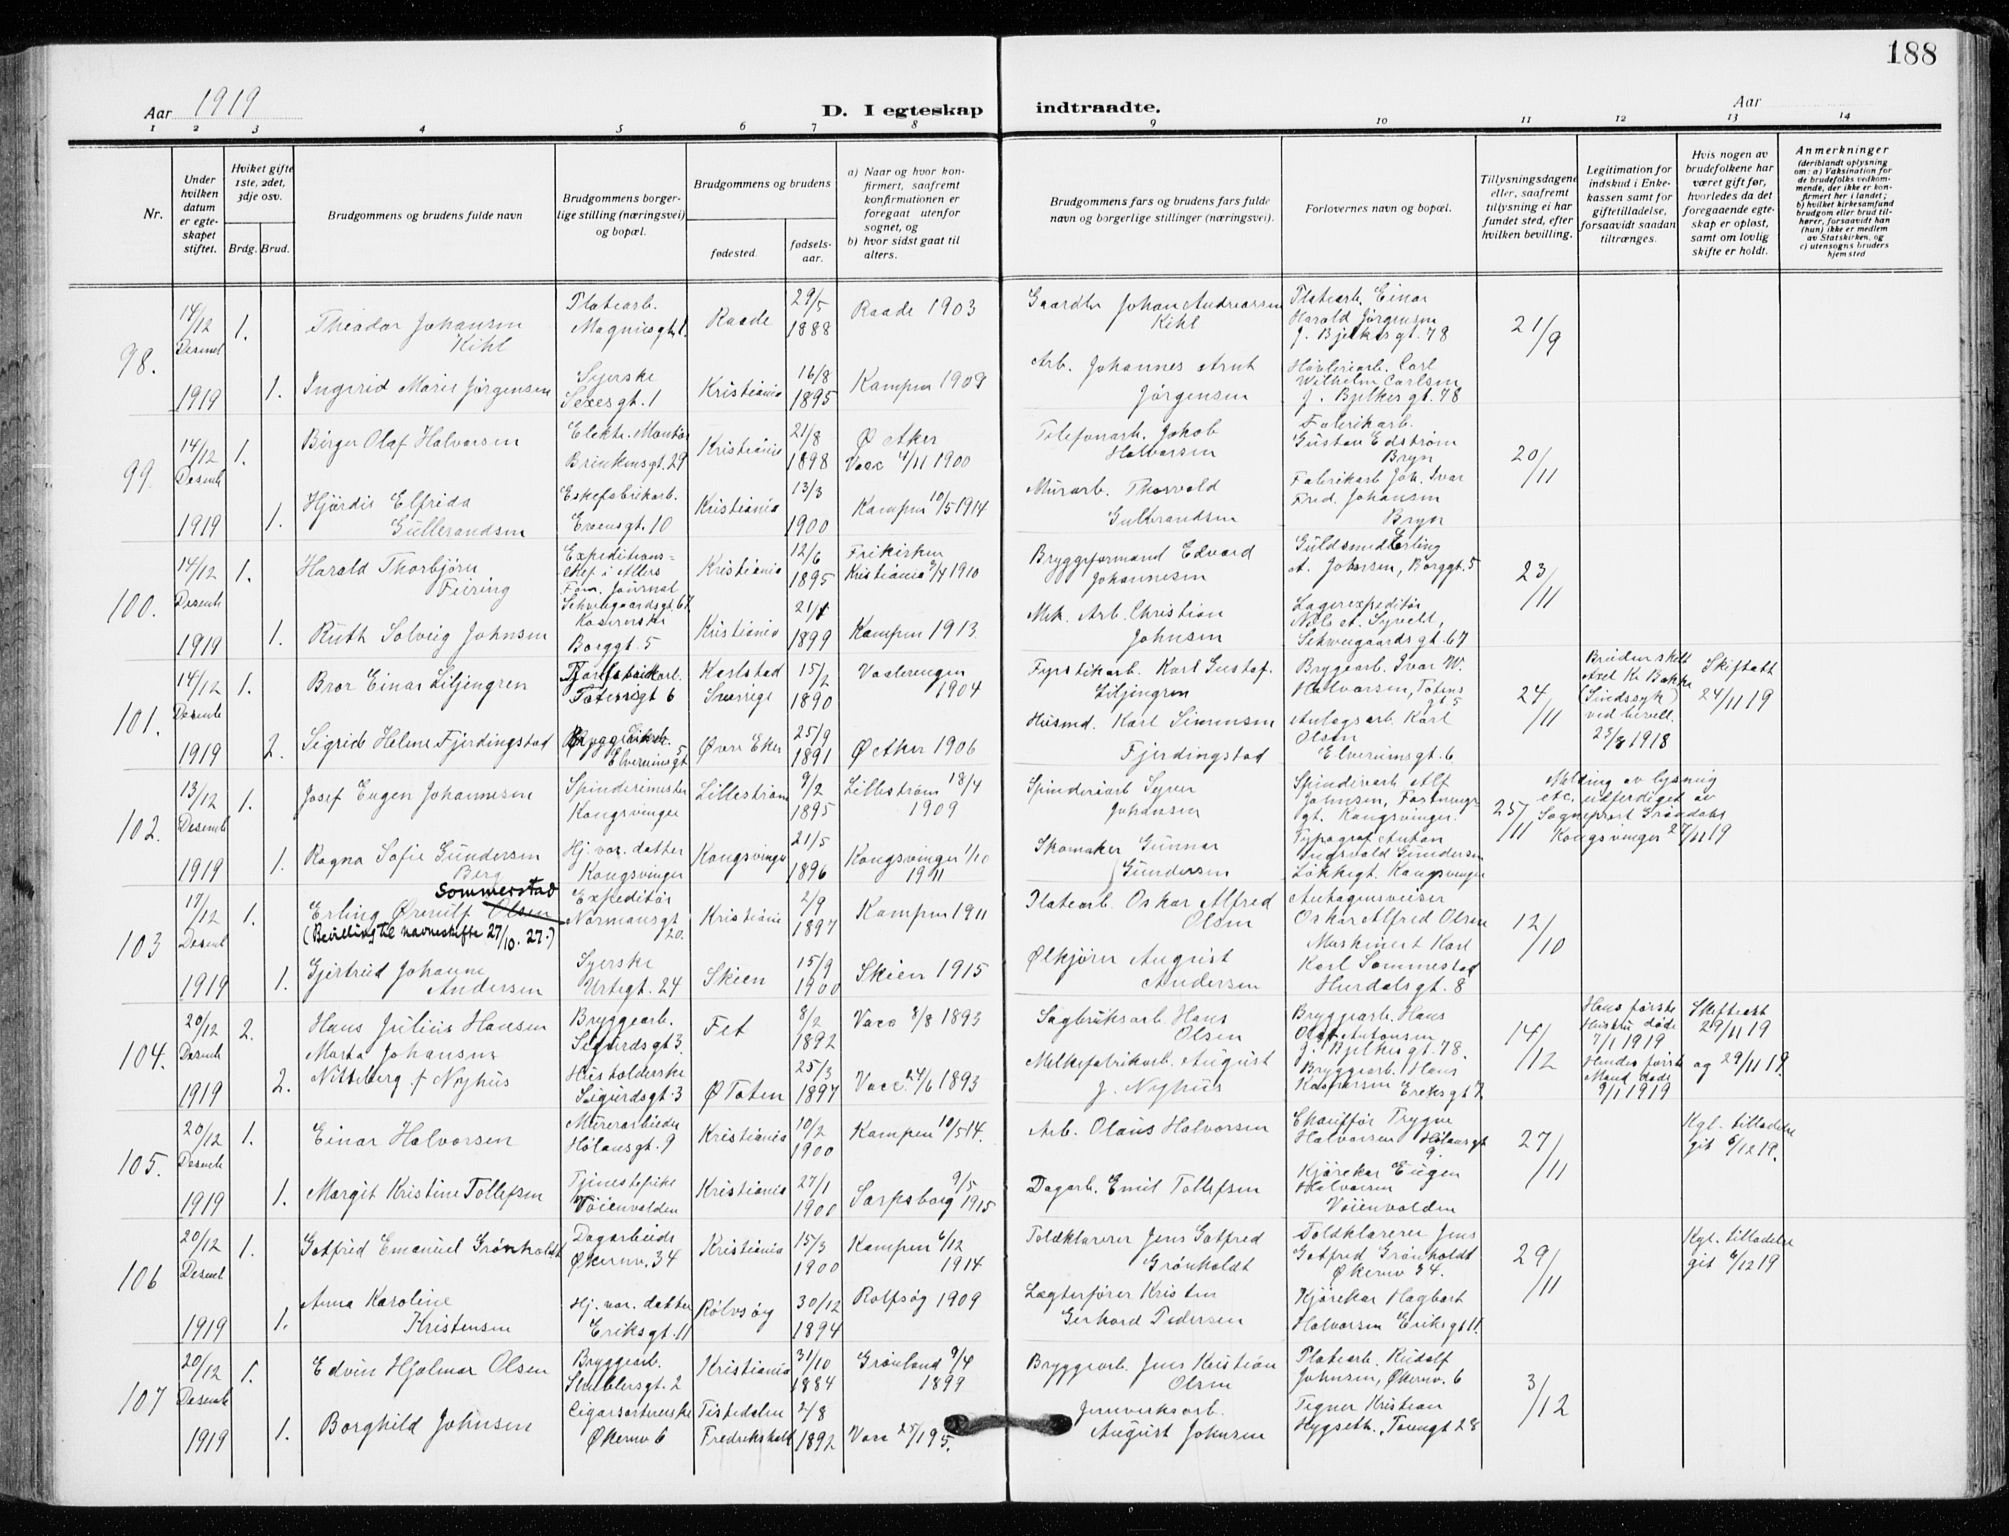 188
Aar 1919
D. I egteskap indtraadte.
Aar
1 2 3 4 5 6 7 8 9 10 11 12 13 14
Nr.
Under hvilken datum er egteskapet stiftet.
Hvilket gifte 1ste, 2det, 3dje osv.
Brdg. Brud.
Brudgommens og brudens fulde navn
Brudgommens borgerlige stilling (næringsvei) og bopæl.
Brudgommens og brudens
fødested.
fødselsaar.
a) Naar og hvor konfirmert, saafremt konfirmationen er foregaat utenfor sognet, og
b) hvor sidst gaat til alters.
Brudgommens fars og brudens fars fulde navn og borgerlige stillinger (næringsvei).
Forlovernes navn og bopæl.
Tillysningsdagene eller, saafremt tillysning ei har fundet sted, efter hvilken bevilling.
Legitimation for indskud i Enkekassen samt for giftetilladelse, forsaavidt saadan tiltrænges.
Hvis nogen av brudefolkene har været gift før, hvorledes da det foregaaende egteskap er opløst, samt om lovlig skifte er holdt.
Anmerkninger
(deriblandt oplysning om: a) Vaksination for de brudefolks vedkommende, der ikke er konfirmert her i landet; b) hvilket kirkesamfund brudgom eller brud tilhører, forsaavidt han (hun) ikke er medlem av Statskirken, og c) utensogns bruders hjemsted
98. 14/12 Desemb 1919
1. Theodor Johansen Kihl
Platearb. Magnusgt 1.
Raade
29/5 1888
Raade 1903
Gaardbr Johan Andreassen Kihl
Platearb. Einar Harald Jørgensen J. Bjelkesgt. 78
21/9
1. Ingrid Marie Jørgensen
Syerske Sexesgt. 1
Kristiania
16/8 1895
Kampen 1909
Arb. Johannes Arnt Jørgensen
Høvleriarb. Carl Wilhelm Carlsen J. Bjelkesgt. 78
99. 14/12 Desemb 1919
1. Birger Olaf Halvorsen
Elektr. Montør Brinkensgt. 29
Kristiania
21/8 1898
Ø Aker Vacc 4/11 1900
Telefonarb. Jakob Halvorsen
Fabrikarb. Gustav Edstrøm Bryn
20/11
1. Hjördis Elfrida Gulbrandsen
Eskefabrikarb. Evensgt. 10
Kristiania
13/3 1900
Kampen 10/5 1914
Murarb. Thorvald Gulbrandsen
Fabrikarb Joh. Ivar Fred. Johansen Bryn
100. 14/12 Desemb 1919
1. Harald Thorbjørn Feiring
Expeditionschef i Allers Fam. Journal Schweigaardsgt. 67
Kristiania
12/6 1895
Frikirken Kristiania 3/4 1910
Bryggeformand Edvard Johannesen
Guldsmed Erling A. Johnsen, Borggt. 5
23/11
1. Ruth Solveig Johnsen
Kasererske Borggt. 5
Kristiania
21/1 1899
Kampen 1913.
Mek. Arb. Christian Johnsen
Lagerexpeditør Nils A. Syveld, Schweigaards gt. 67
101. 14/12 Desemb 1919
1. Bror Einar Liljengren
Totensgt 6
Karlstad Sverrige
15/2 1890
Vaalerengen 1904
Fyrstikarb. Karl Gustaf. Liljengren
Bryggearb. Ivar W. Halvorsen, Totens gt 5
24/11
Bruden skilt Axel K. Bakke (Sindssyk) ved bevill. 23/8 1918
Skifteatt 24/11 19
2. Sigrid Helene Fjerdingstad
Elverumsgt 5
Øvre Eker
25/9 1891
Ø Aker 1906
Husmd. Karl Simensen Fjerdingstad
Anlegsarb. Karl Olsen Elverumsgt. 6
102. 13/12 Desemb 1919
1. Josef Eugen Johannesen
Spinderimester Kongsvinger
Lillestrøm
9/2 1895
Lillestrøm 18/4 1909
Spinderiarb Syver Johansen
Spinderiarb Alf Johnsen, Fastningsgt. Kongsvinger.
25/11
Melding av lysning etc. utferdiget av Sogneprest Grøndahl Kongsvinger 27/11 19
1. Ragna Sofie Gundersen Berg
Hj. var. datter Kongsvinger
Kongsvinger
21/5 1896
Kongsvinger 1/10 1911
Skomaker Gunnar Gundersen
Typograf Anton Ingvald Gundersen Løkkegt. Kongsvinger
103 17/12 Desemb 1919
1. Erling Ørnulf Olsen Sommerstad
(Bevilling til navneskifte 27/10. 27.)
Expeditør Normansgt 20.
Kristiania
2/9 1897
Kampen 1911
Platearb. Oskar Alfred Olsen
Oskar Alfred Olsen
12/10
1. Gjertrud Johanne Andersen
Syerske Urtegt. 24
Skien
15/9 1900
Skien 1915
Ølkjører August Andersen
Maskinert Karl Karl Sommestad Hurdalsgt. 8
104. 20/12 Desemb 1919
2. Hans Julius Hansen
Bryggearb. Sigurdsgt 3.
Fet
8/2 1892
Vacc 8/8 1893
Sagbruksarb. Hans Olsen
Bryggearb. Hans Olaf Antonsen J. Bjelkesgt. 78.
14/12
Hans første Hustru døde 7/1 1919
Skifteatt 29/11 19
2. Marta Johansen Nitteberg f. Nyhus
Husholderske Sigurdsgt. 3
Ø Toten
25/3 1897
Vacc. 24/6 1893
Melkefabrikarb. August J. Nyhus
Bryggearb. Hans Kaspersen Eriksgt 7.
Hendes første Mand døde 9/1 1919
og 29/11 19.
105. 20/12 Desemb 1919
1. Einar Halvorsen
Murerarbeider Hølansgt. 9
Kristiania
10/2 1900
Kampen 10/5 14.
Arb. Olaus Halvorsen
Chauffør Trygve Halvorsen Hølansgt 9.
27/11
Kgl. tilladelse git 6/12 19.
1. Margit Kristine Tollefsen
Tjenestepike Vøienvolden
Kristiania
27/1 1900
Sarpsborg 9/5 1915
Dagarb. Emil Tollefsen
Kjørekar Eugen Halvorsen Vøienvolden
106 20/12 Desemb 1919
1. Gotfred Emanuel Grønholdt
Dagarbeider Økernv. 34
Kristiania
15/3 1900
Kampen 6/12 1914
Toldklarerer Jens Gotfred Grønholdt
Toldklarerer Jens Gotfred Grønholdt Økernv 34.
29/11
Kgl. tilladelse git 6/12 19
1. Anna Karoline Kristensen
Hj. var. datter Eriksgt. 11
Rolvsøy
30/12 1894
Rolfsøy 1909
Lægterfører Kristen Gerhard Pedersen
Kjørekar Hagbart Halvorsen Eriksgt 11.
107 20/12 Desemb 1919
1. Edvin Hjalmar Olsen
Bryggearb. Stublersgt. 2
Kristiania
31/10 1884
Grønland 9/4 1899
Bryggearb. Jens Kristian Olsen
Platearb. Rudolf Johnsen, Økernv. 6
3/12
1. Borghild Johnsen
Cigarsorterske Økernv 6
Tistedalen Fredrikshald
2/8 1892
Vacc 25/1 95.
Jernverksarb. August Johnsen
Tegner Kristian Hygseth., Torengt 28